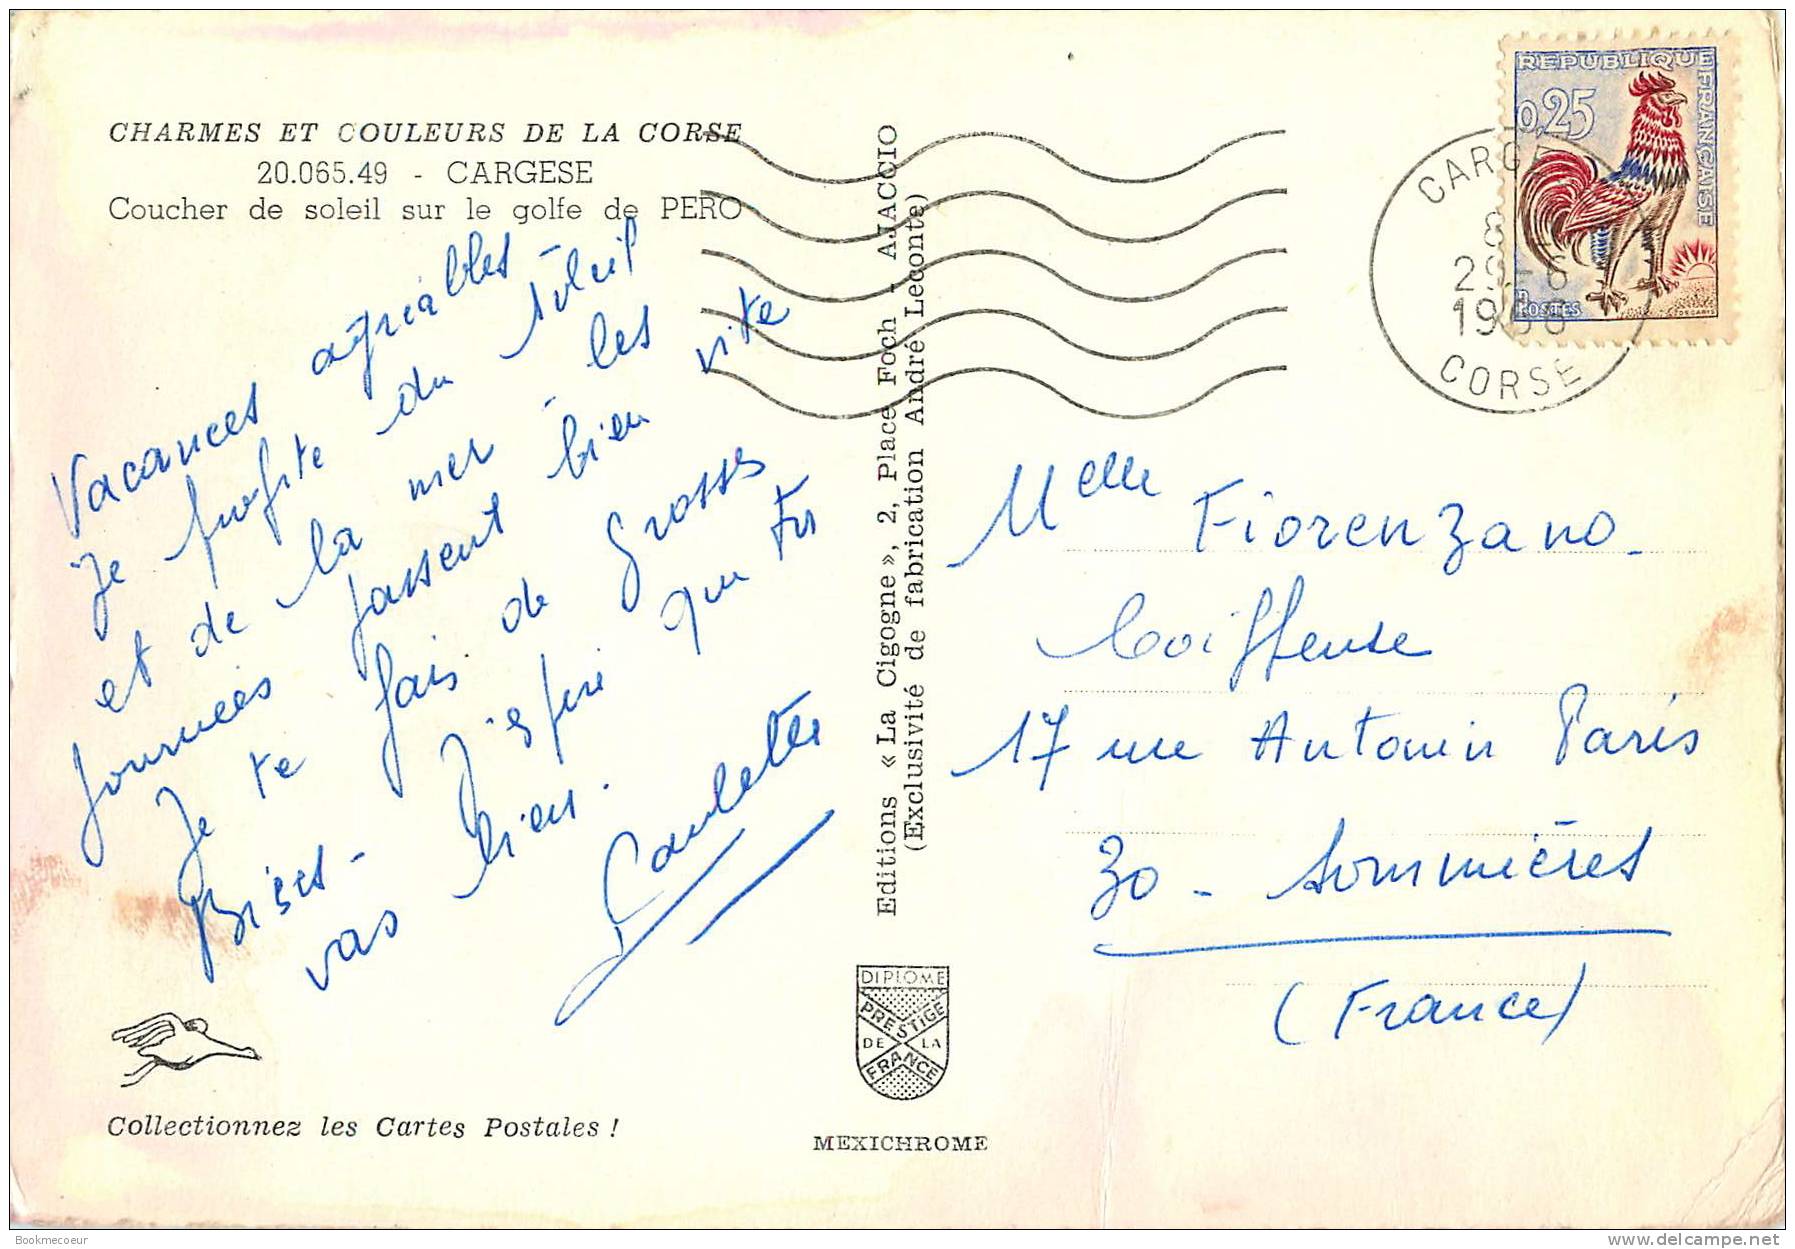 CHARMES ET COULEURS DE LA CORSE
20.065.49 - CARGESE
Coucher de soleil sur le golfe de PERO
Vacances agréables -
Je profite du soleil
et de la mer - les
journées passent bien vite
Je te fais de grosses
Bises - J'espère que tu
vas bien.
Paulette
Collectionnez les Cartes Postales !
Editions « La Cigogne », 2, Place Foch - AJACCIO
(Exclusivité de fabrication André Leconte)
DIPLOME
PRESTIGE
DE LA
FRANCE
MEXICHROME
REPUBLIQUE FRANÇAISE
0,25
POSTES
CORSE
Melle Fiorenzano -
Coiffeuse
17 rue Antonin Paris
30 - Sommières
(France)
Bookmecoeur
delcampe.net